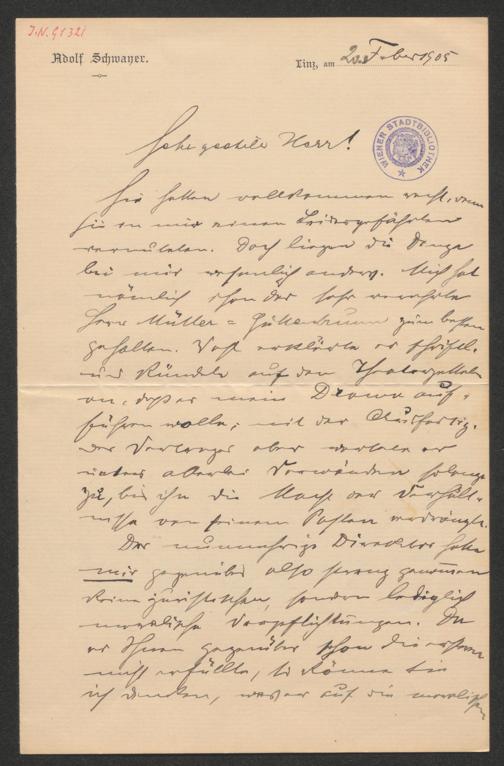 J.N. 91321
Adolf Schwayer.
Linz, am 20. Feber 1905
WIENER STADTBIBLIOTHEK
Sehr geehrter Herr!
Sie hatten vollkommen recht, wenn
Sie in mir einen Leidensgefährten
vermuteten. Doch liegen die Dinge
bei mir wesentlich anders. Mich hat
nämlich schon der sehr verehrte
Herr Müller-Guttenbrunn zum besten
gehalten. Erst erklärte er schriftl.
und kündete auf den Theaterzetteln
an, daß er mein Drama auf-
führen wolle; mit der Ausfertig.
des Vertrages aber wartete er
unter allerlei Vorwänden solange
zu, bis ihn die Macht der Verhält-
nisse von seinem Posten verdrängte.
Der nunmehrige Direktor hatte
mir gegenüber also streng genommen
keine juristischen, sondern lediglich
moralische Verpflichtungen. Da
er Ihnen gegenüber schon die ersteren
nicht erfüllte, so können Sie
sich denken, was er auf die moralischen